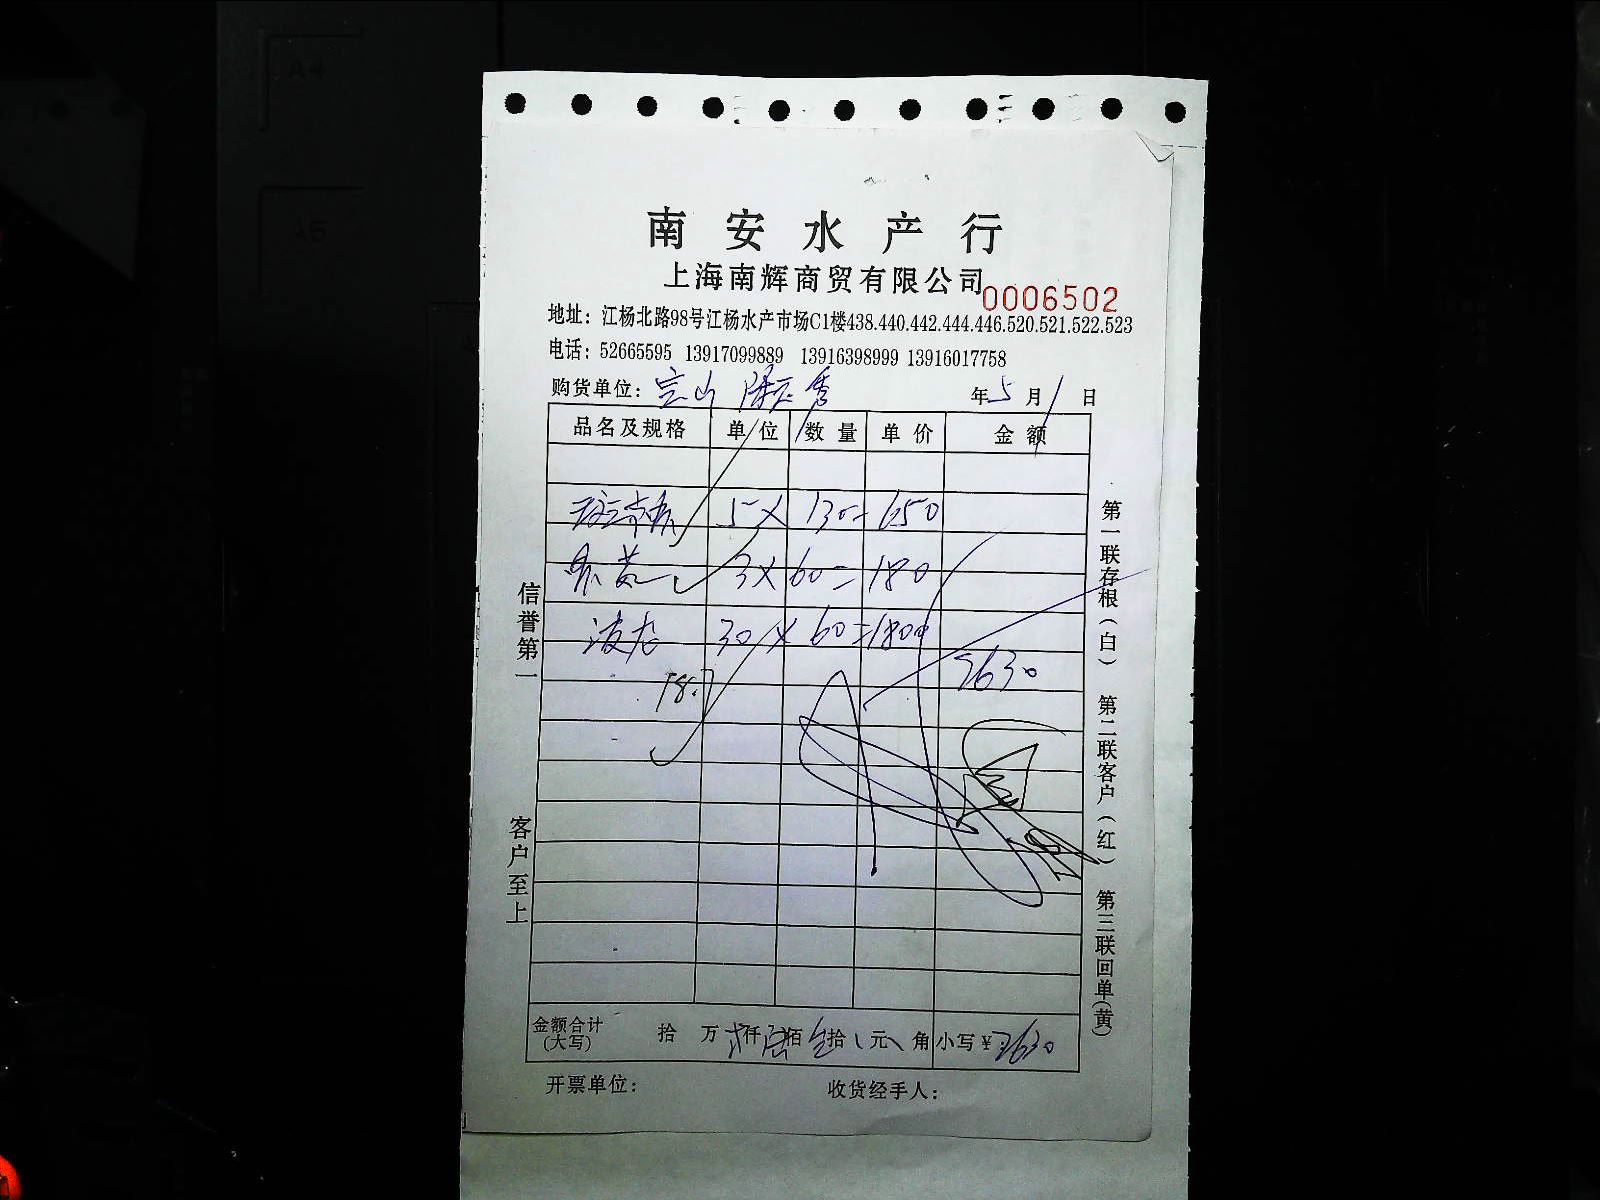 南安水产行
上海南辉商贸有限公司
0006502
地址：江杨北路98号江杨水产市场C1楼438.440.442.444.446.520.521.522.523
电话：52665595 13917099889 13916398999 13916017758
购货单位：宝山 年5月1日
品名及规格 单位 数量 单价 金额
5X 130=650
3X 60=180
波龙 30X 60=1800
18.7
2630
金额合计（大写） 拾 万 贰仟 陆佰 叁拾 元 角 小写￥2630
开票单位： 收货经手人：
信誉第一
客户至上
第一联存根（白） 第二联客户（红） 第三联回单（黄）